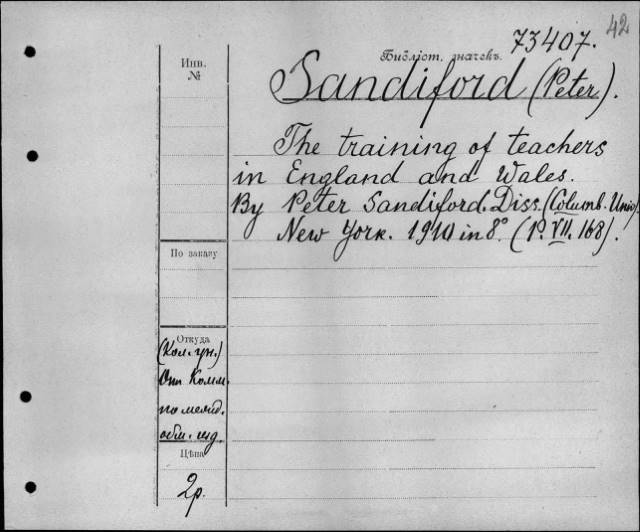 42
73407.
Библіот. значекъ.
Инв.
№
Sandiford (Peter).
The training of teachers
in England and Wales.
By Peter Sandiford. Diss. (Columb. Univ).
New York. 1910 in 8°. (P. VII. 168).
По заказу
Откуда
(Кол. ун.)
От Комм.
по межд.
обм. изд.
Цѣна
2р.